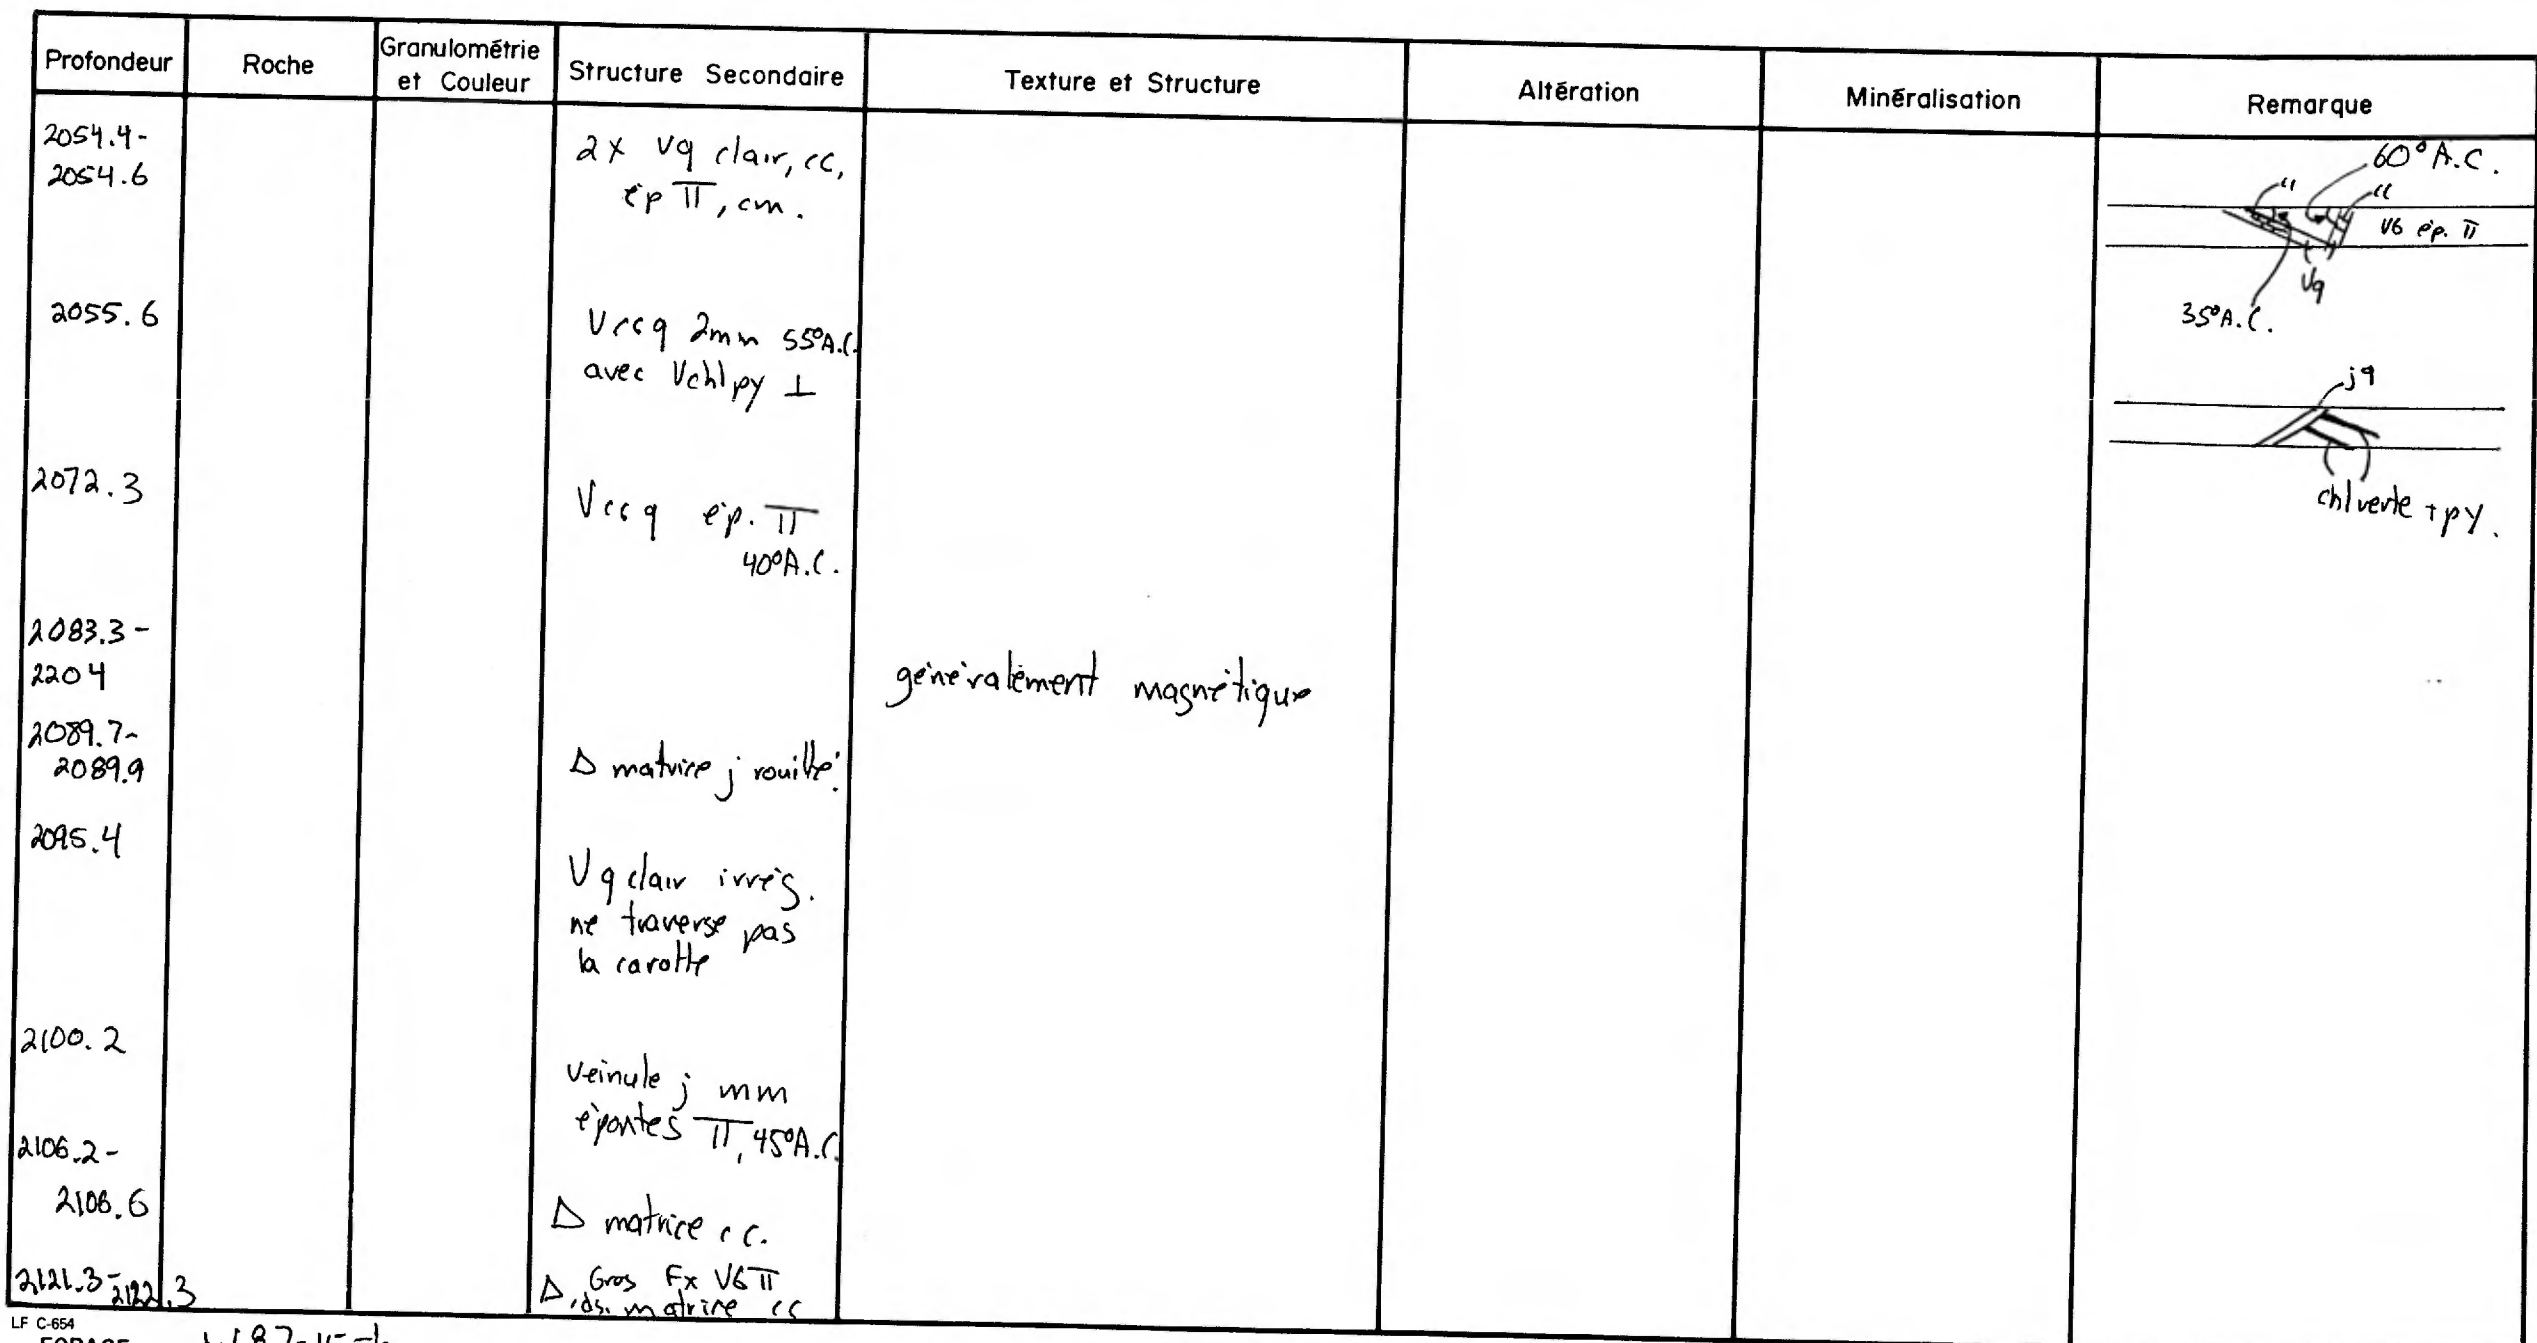 Profondeur Roche Granulométrie et Couleur Structure Secondaire Texture et Structure Altération Minéralisation Remarque
2054.4-
2054.6
2x Vq clair, cc,
ép π, cm.
60° A.C.
"
"
V6 ép. π
Vq
35° A.C.
2055.6
Vccq 2mm 55°A.C.
avec Vchlpy ⊥
jq
chl verte + py.
2072.3
Vccq ép. π
40°A.C.
2083.3-
2204
généralement magnétique
2089.7-
2089.9
Δ matrice j rouillé.
2095.4
Vq clair irrég.
ne traverse pas
la carotte
2100.2
veinule j mm
épontes π, 45°A.C.
2106.2-
2106.6
Δ matrice cc.
2121.3-2122.3
Δ, Gros Fx V6 π
ds. matrice cc
LF C-654